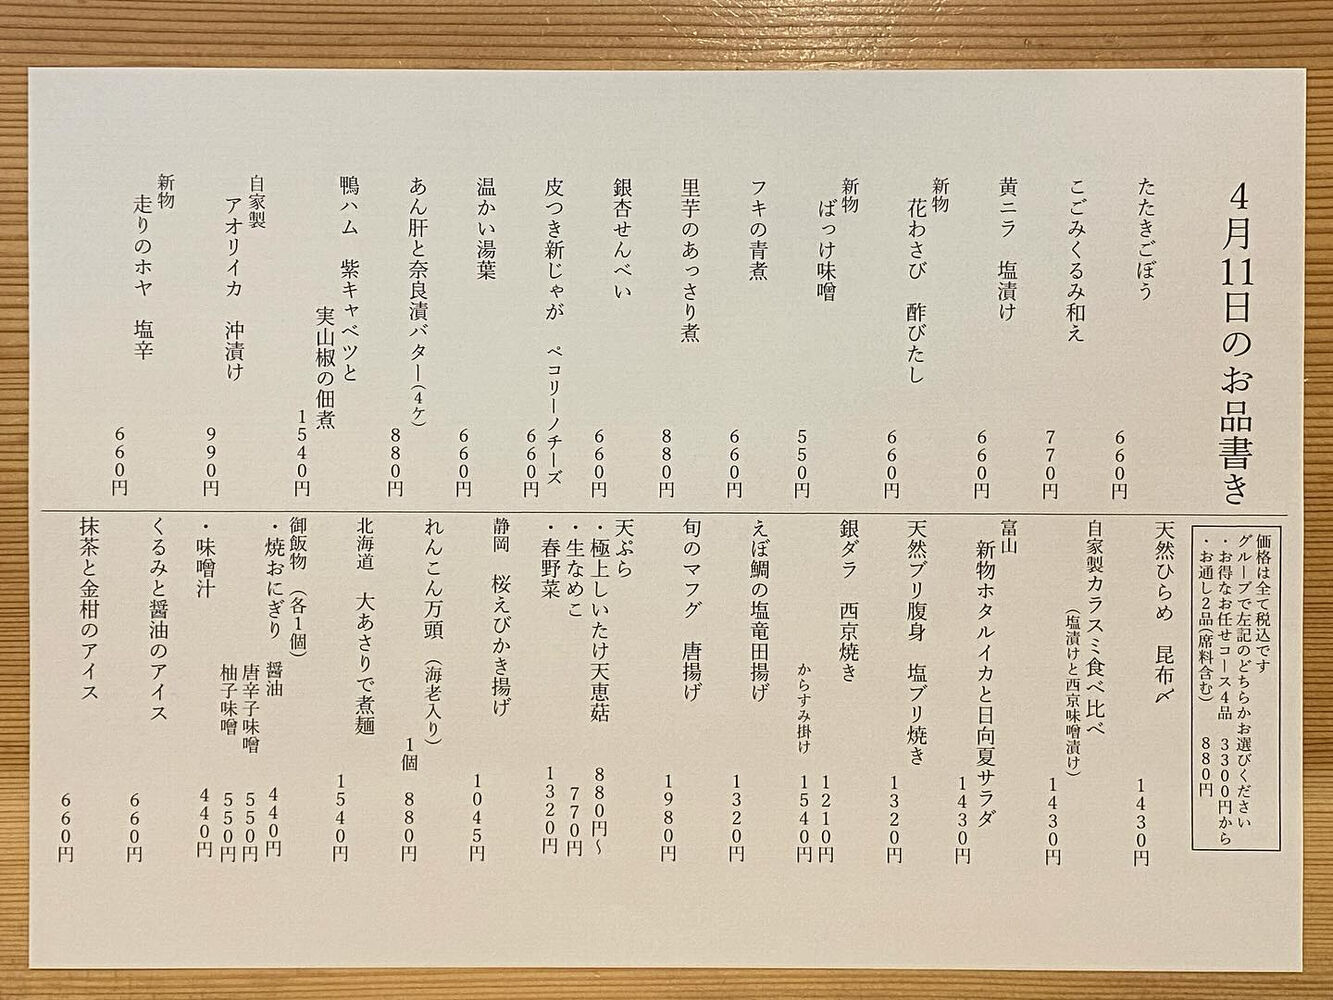 4月11日のお品書き
たたきごぼう
660円
こごみくるみ和え
770円
黄ニラ　塩漬け
660円
新物
花わさび　酢びたし
660円
新物
ばっけ味噌
550円
フキの青煮
660円
里芋のあっさり煮
880円
銀杏せんべい
660円
皮つき新じゃが　ペコリーノチーズ
660円
温かい湯葉
660円
あん肝と奈良漬バター(4ケ)
880円
鴨ハム　紫キャベツと
実山椒の佃煮
1540円
自家製
アオリイカ　沖漬け
990円
新物
走りのホヤ　塩辛
660円
価格は全て税込です
グループで左記のどちらかお選びください
・お得なお任せコース4品　3300円から
・お通し2品(席料含む)　880円
天然ひらめ　昆布〆
1430円
自家製カラスミ食べ比べ
(塩漬けと西京味噌漬け)
1430円
富山
新物ホタルイカと日向夏サラダ
1430円
天然ブリ腹身　塩ブリ焼き
1320円
銀ダラ　西京焼き
1210円
からすみ掛け　1540円
えぼ鯛の塩竜田揚げ
1320円
旬のマフグ　唐揚げ
1980円
天ぷら
・極上しいたけ天恵菇　880円～
・生なめこ　770円
・春野菜　1320円
静岡　桜えびかき揚げ
1045円
れんこん万頭　(海老入り)
1個　880円
北海道　大あさりで煮麺
1540円
御飯物　(各1個)
・焼おにぎり　醤油　440円
唐辛子味噌　550円
柚子味噌　550円
・味噌汁　440円
くるみと醤油のアイス
660円
抹茶と金柑のアイス
660円